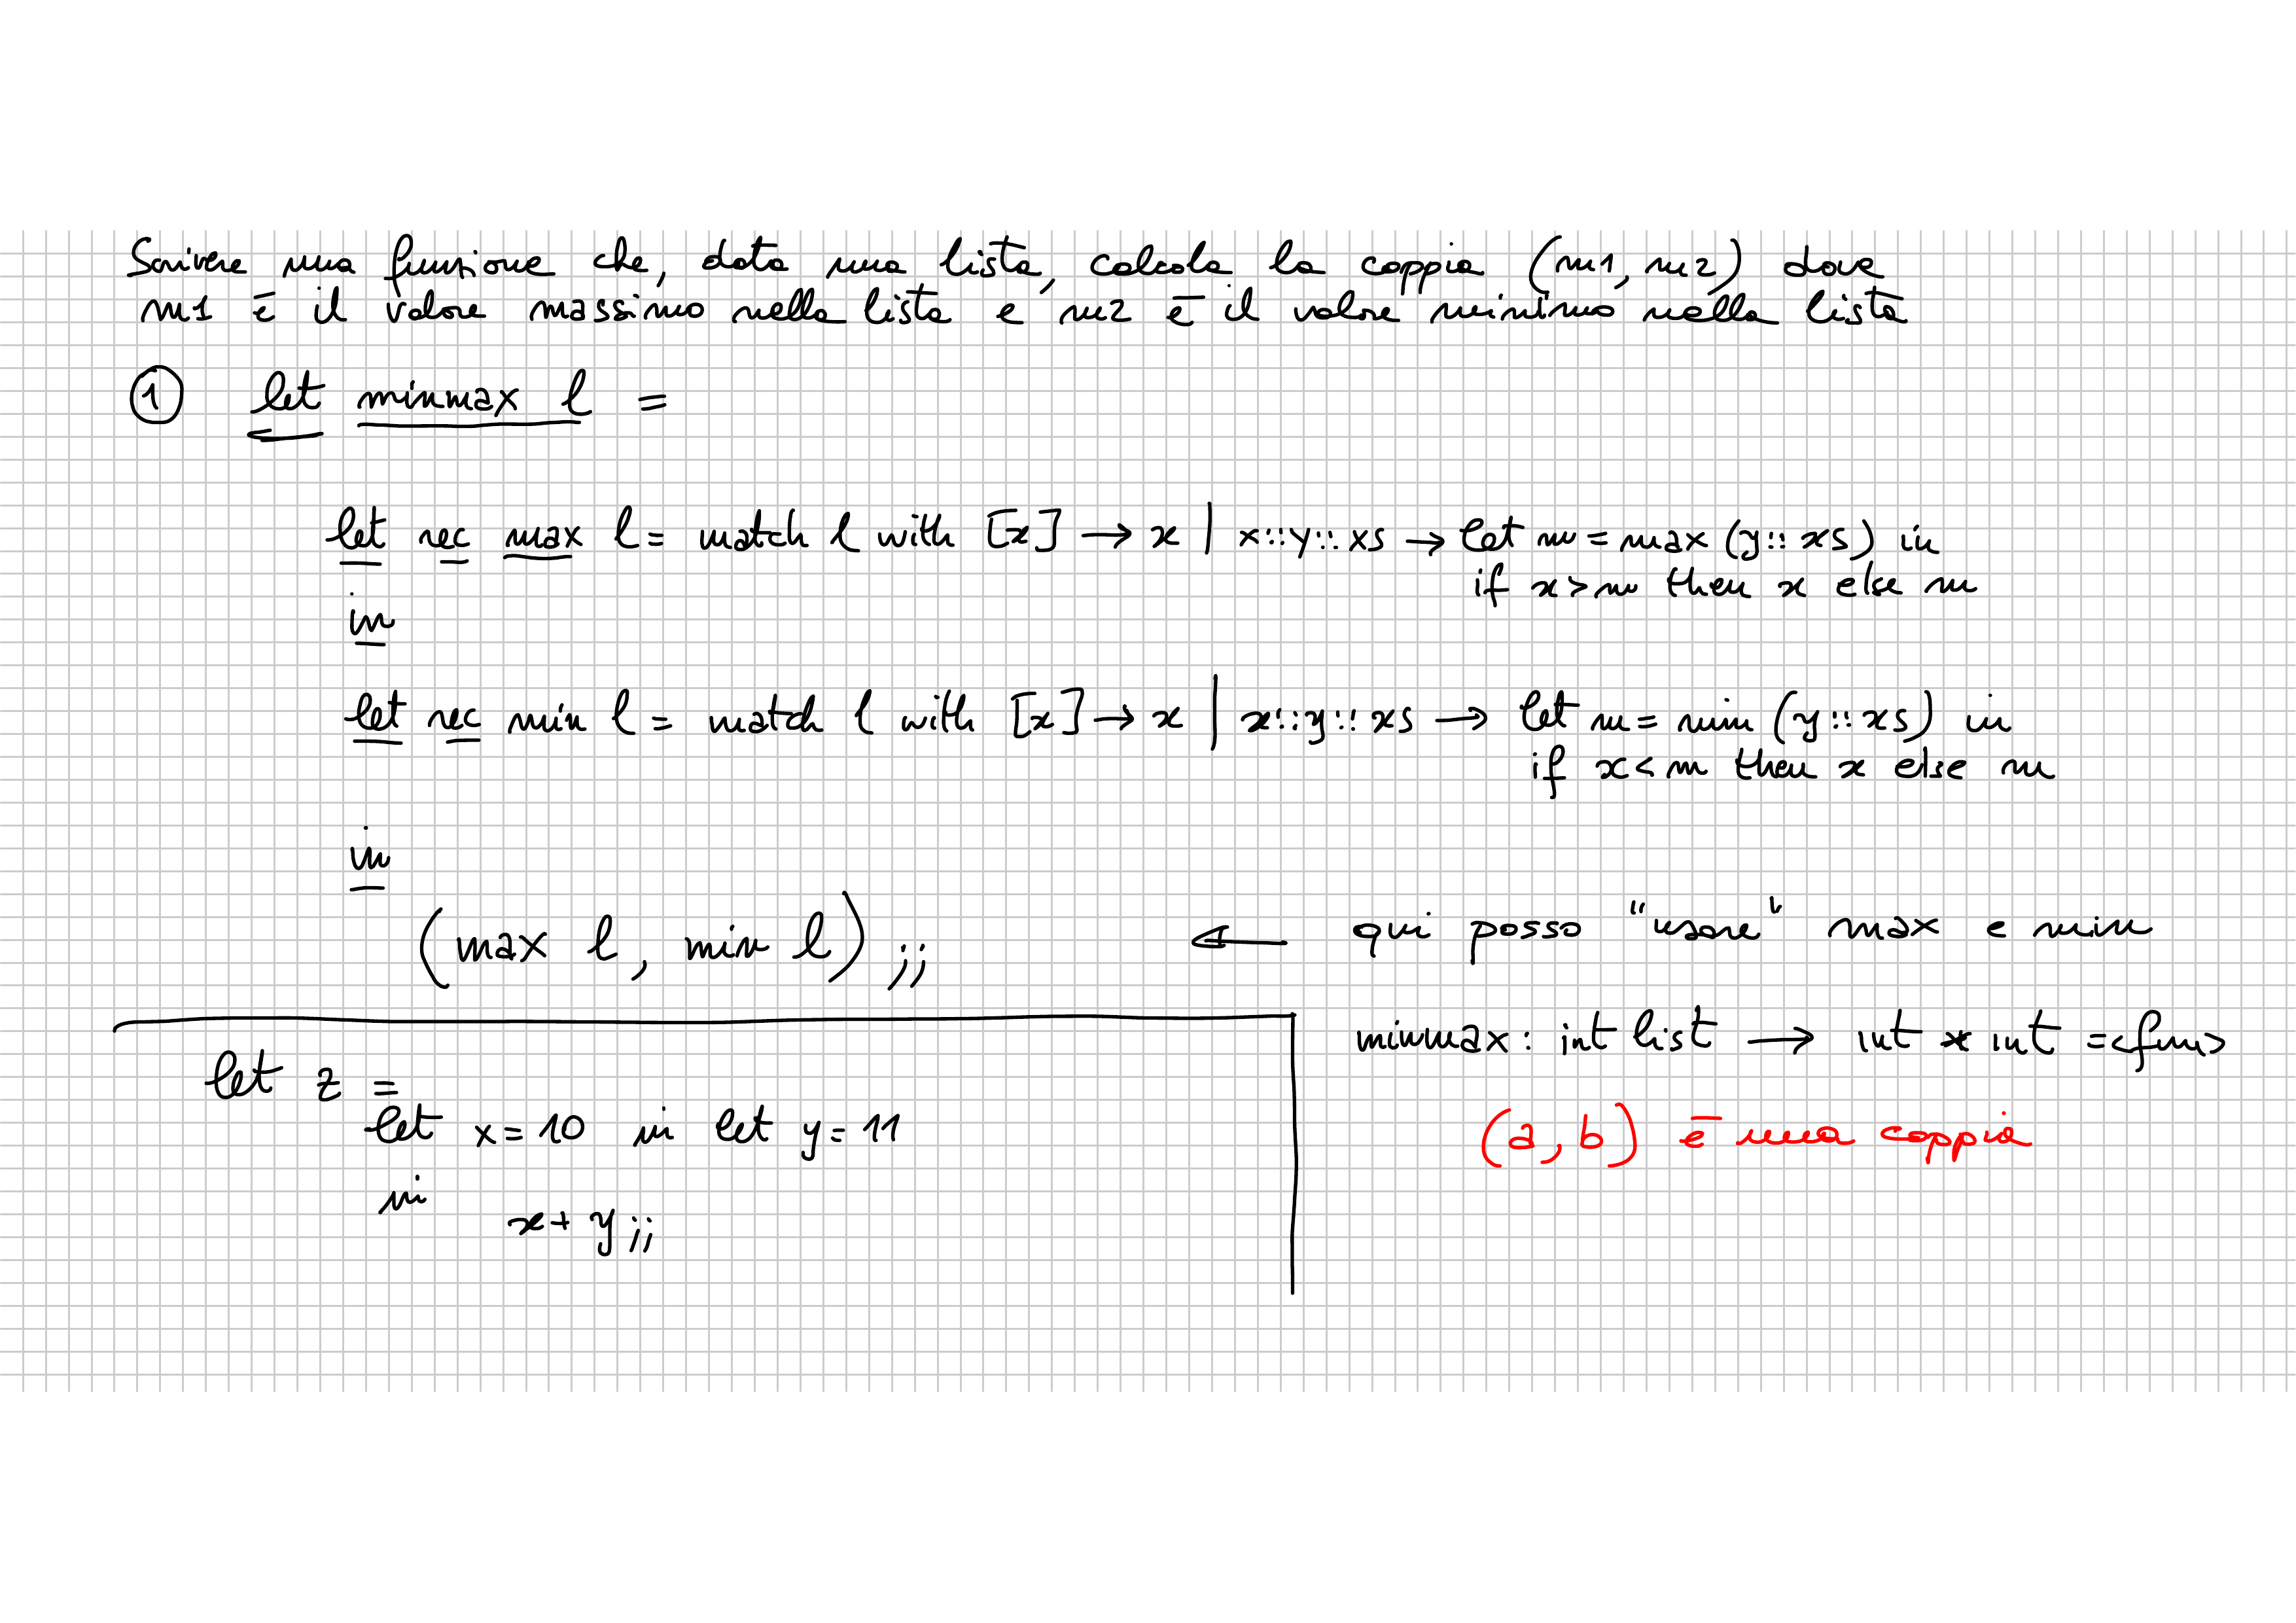 Scrivere una funzione che, data una lista, calcola la coppia (m1, m2) dove
m1 è il valore massimo nella lista e m2 è il valore minimo nella lista
① let minmax l =
let rec max l = match l with [x] → x | x::y::xs → let m = max (y::xs) in
if x>m then x else m
in
let rec min l = match l with [x] → x | x::y::xs → let m = min (y::xs) in
if x<m then x else m
in
(max l, min l);; ← qui posso "usare" max e min
minmax: int list → int * int = <fun>
(a, b) è una coppia
let z =
let x = 10 in let y = 11
in
x + y;;